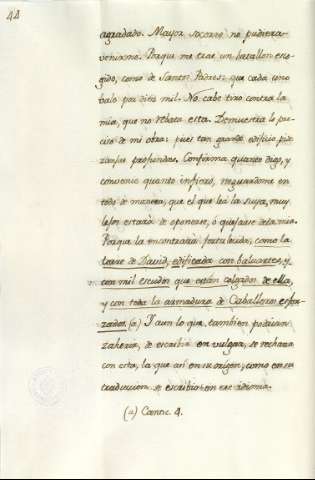 44
agradado. Mayor socorro no pudiera
venirme. Porque me trae un batallon esco-
gido, como de Santos Padres que cada uno
bale por diez mil. No cabe tiro contra la
mia, que no rebata esta. Demuestra lo pre-
ciso de mi obra: pues tan grande edificio pide
zanjas profundas. Confirma quanto digo, y
convence quanto infiero, asegurandome en
todo de manera, que el que lea la suya, muy
lejos estará de oponerse, ó quejarse de la mia.
Porque la encontrará fortalecida, como la
torre de David, edificada con baluartes, y
con mil escudos que están colgados de ella,
y con toda la armadura de Caballeros esfor-
zados. (a) Y aun lo que tambien podrian
zaherir, de escribir en vulgar, se rechaza
con esta, la que asi en su origen, como en su
traduccion se escribió en ese idioma.
(a) Cantic. 4.